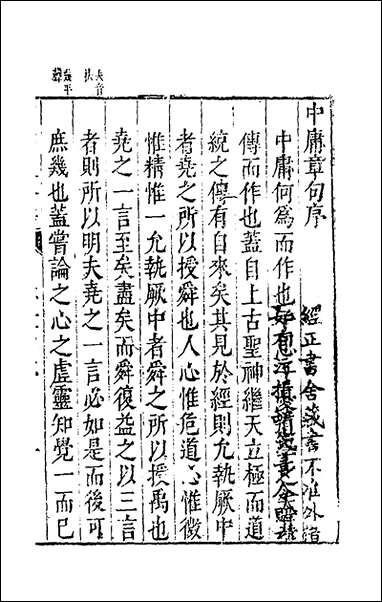 中庸章句序
經正書舍藏書不准外借
中庸何爲而作也
傳而作也蓋自上古聖神繼天立極而道
統之傳有自來矣其見於經則允執厥中
者堯之所以授舜也人心惟危道心惟微
惟精惟一允執厥中者舜之所以授禹也
夫音
扶
幾平
聲
堯之一言至矣盡矣而舜復益之以三言
者則所以明夫堯之一言必如是而後可
庶幾也蓋嘗論之心之虛靈知覺一而已